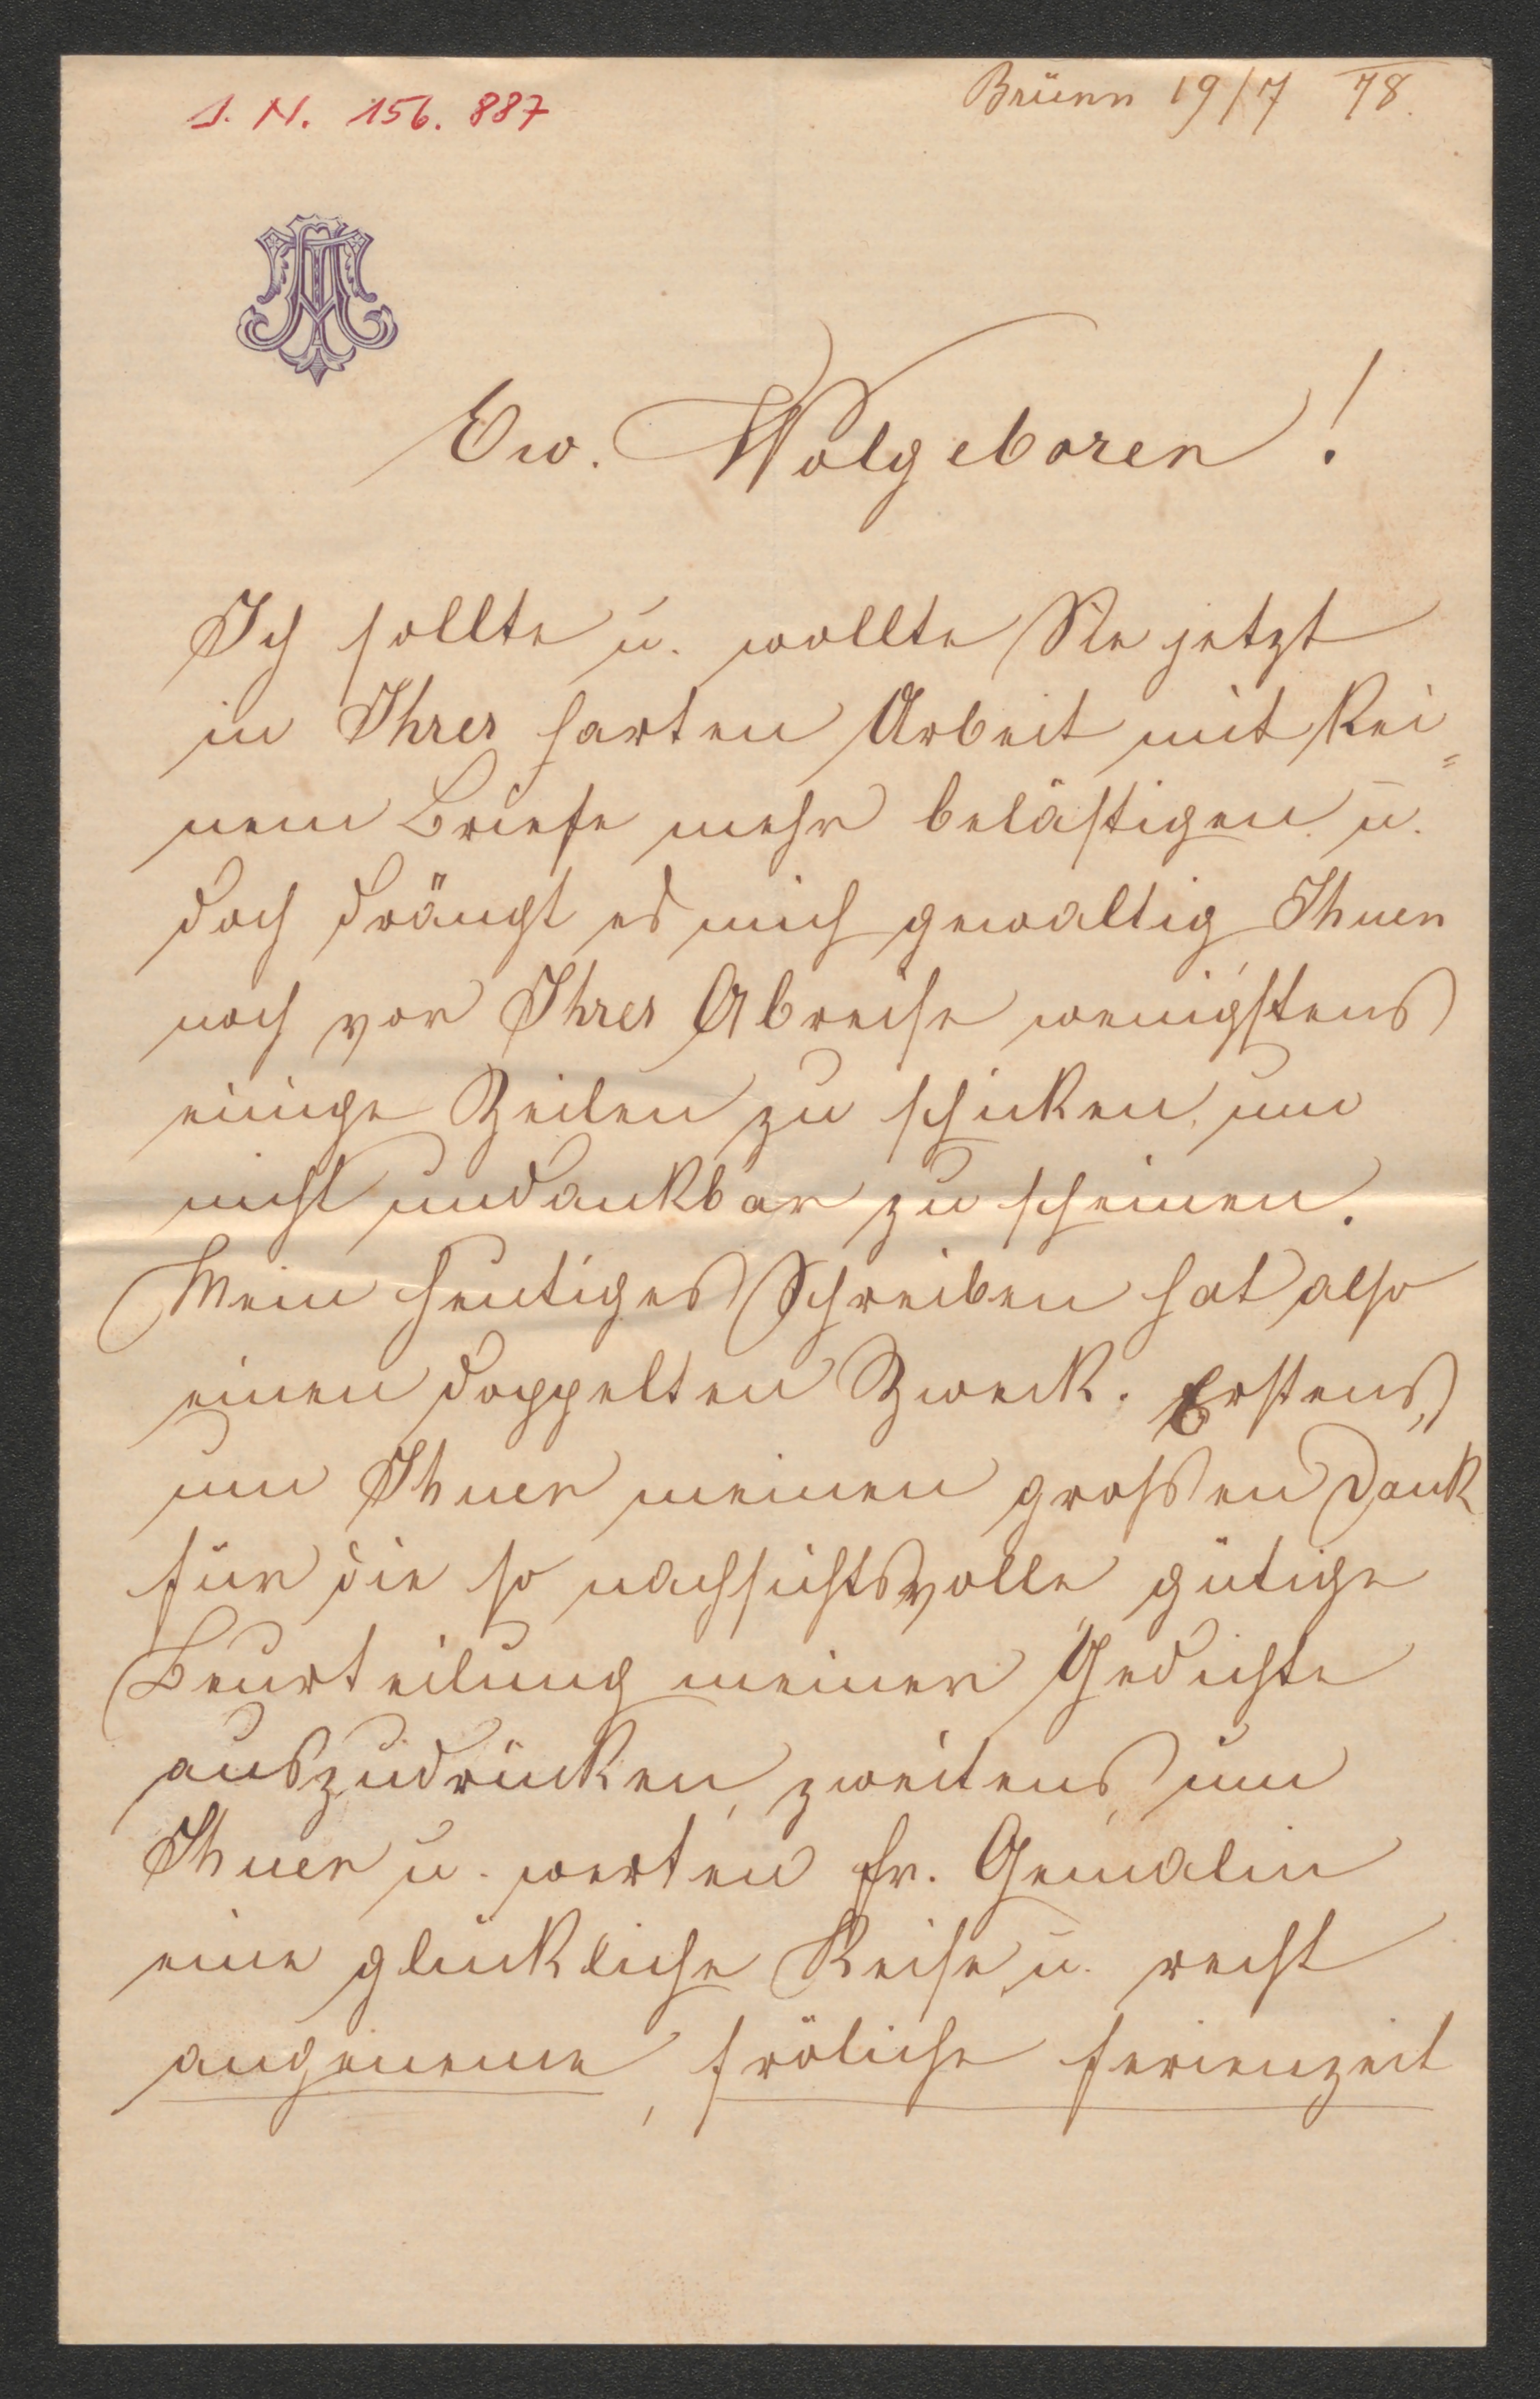 I. N. 156.887
Brünn 19/7 78.
Ew. Wolgeboren!
Ich sollte u. wollte Sie jetzt
in Ihrer harten Arbeit mit kei=
nem Briefe mehr belästigen u.
doch drängt es mich gewaltig Ihnen
noch vor Ihrer Abreise wenigstens
einige Zeilen zu schicken, um
nicht undankbar zu scheinen.
Mein heutiges Schreiben hat also
einen doppelten Zweck. Erstens,
um Ihnen meinen großen Dank
für die so nachsichtsvolle gütige
Beurteilung meiner Gedichte
auszudrücken, zweitens, um
Ihnen u. werten Fr. Gemalin
eine glückliche Reise u. recht
angeneme, fröliche Ferienzeit